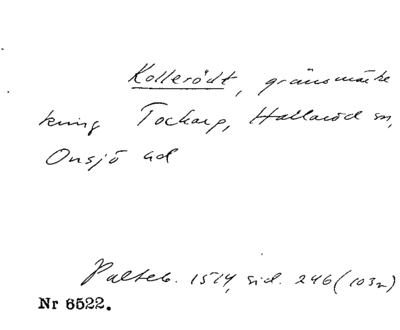 Kollerödt, gränsmärke
kring Tockarp, Hallaröd sn,
Onsjö hd
Palteb. 1514, sid. 246 (103r)
Nr 6522.